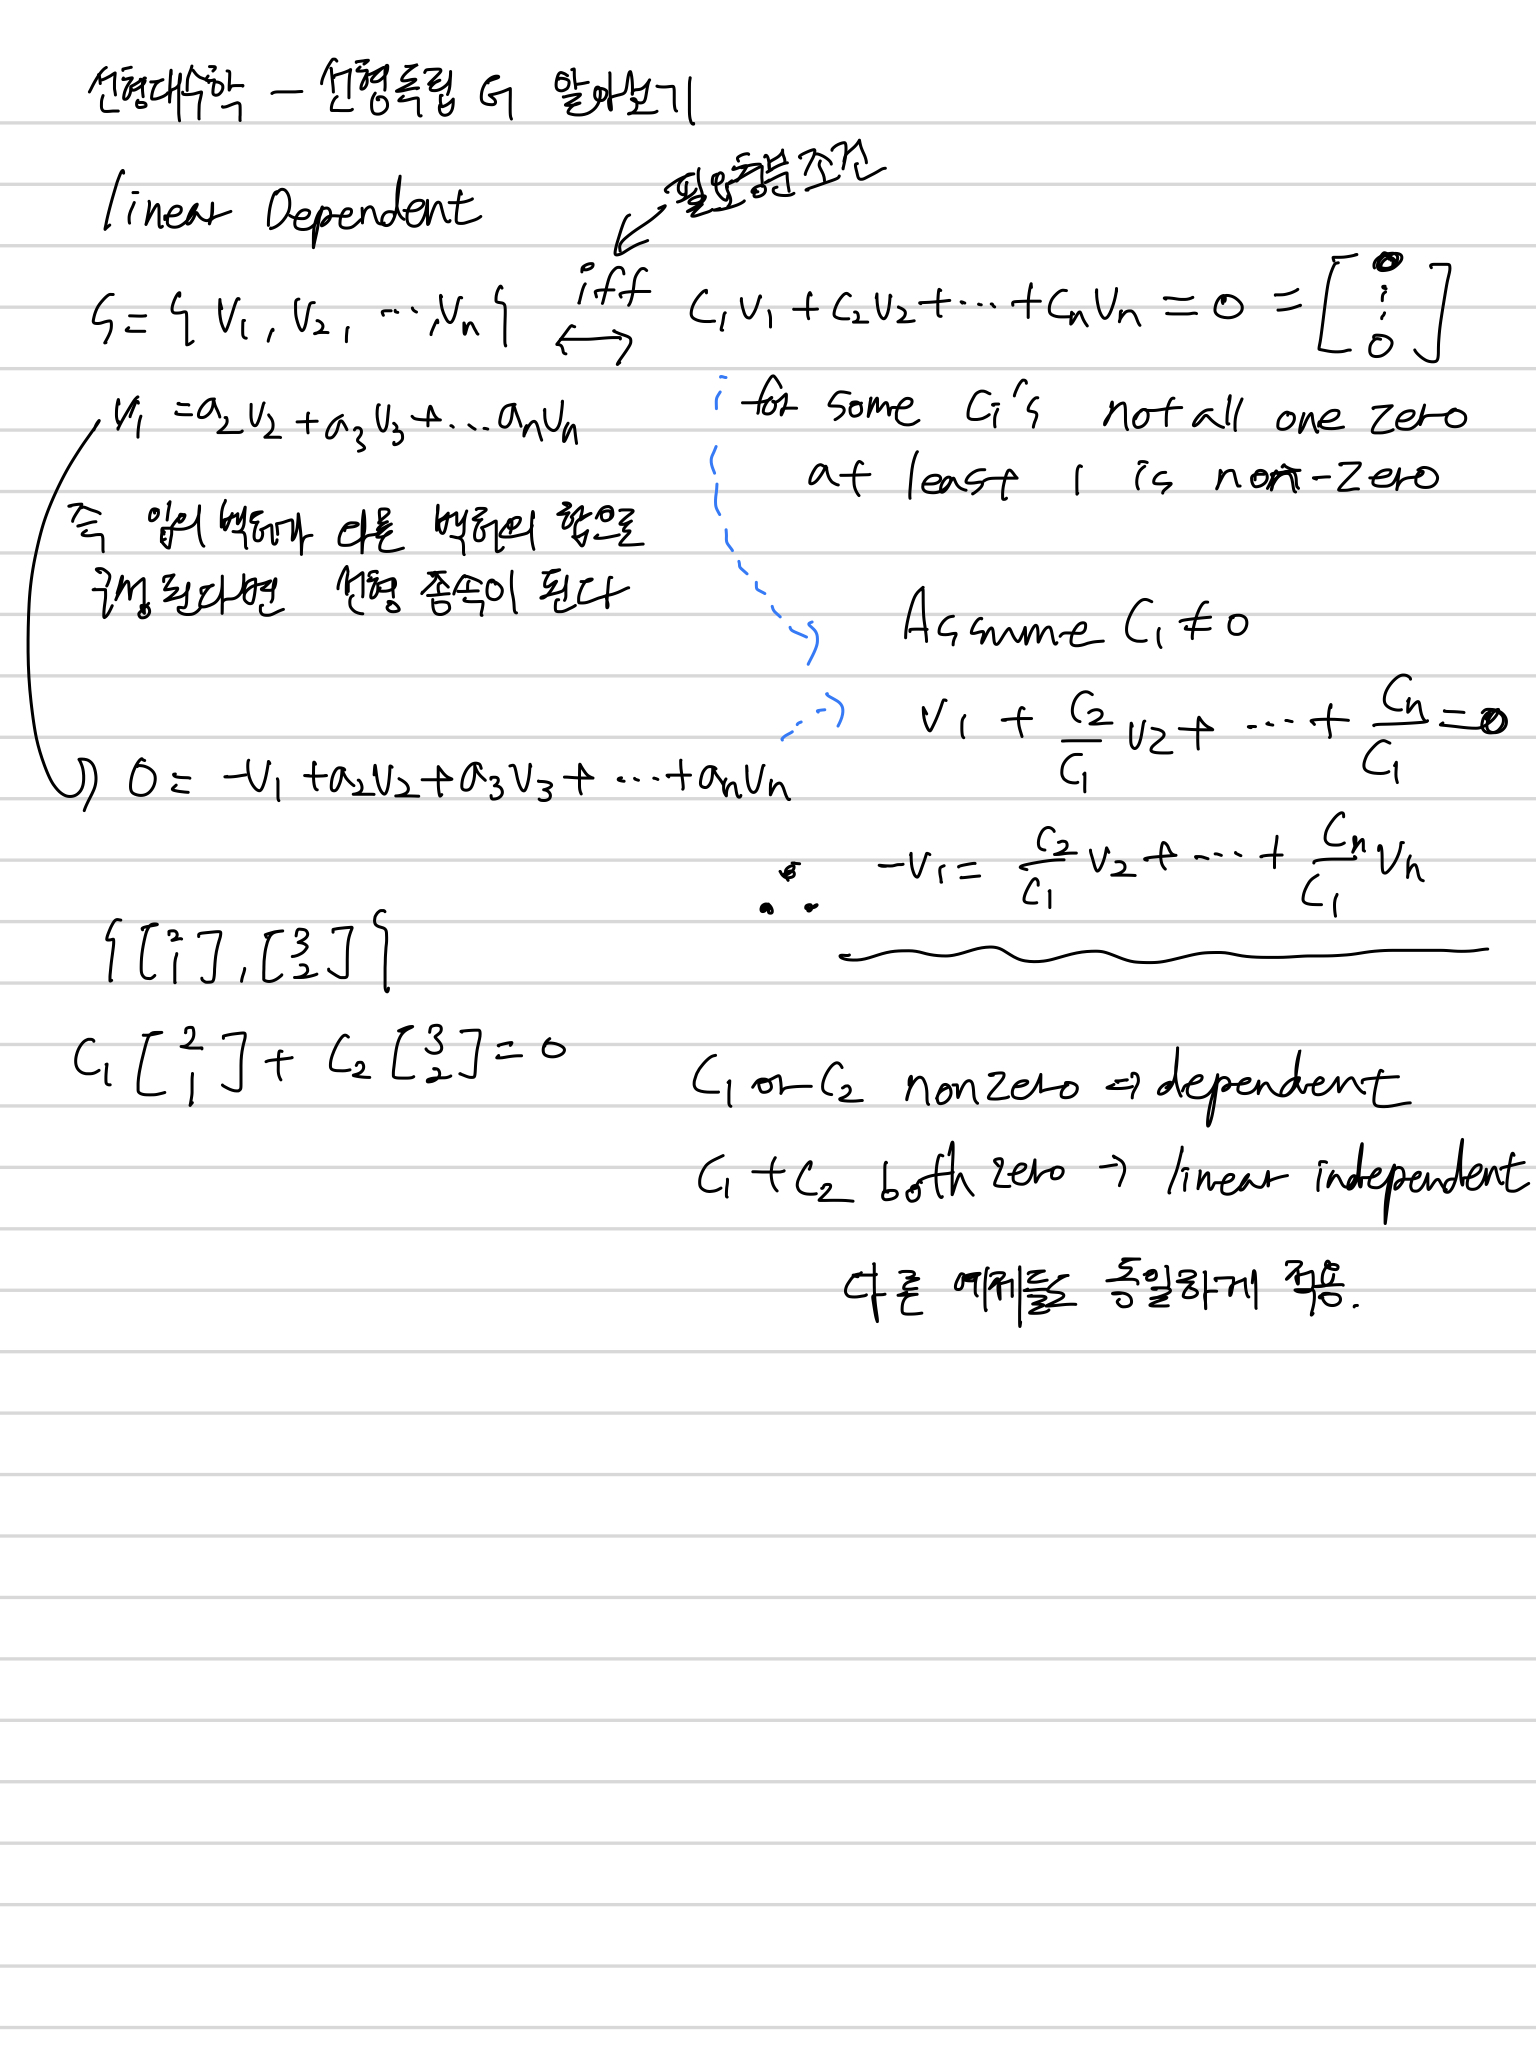 선형대수학 - 선형독립 더 알아보기
필요충분조건
linear Dependent
S = { V₁, V₂, ..., Vₙ } iff ↔ C₁V₁ + C₂V₂ + ... + CₙVₙ = 0 = [0 ⋮ 0]
V₁ = a₂V₂ + a₃V₃ + ... aₙVₙ
for some Ci's not all one zero
at least 1 is non-zero
즉 임의 벡터가 다른 벡터의 합으로
구성된다면 선형 종속이 된다
Assume C₁ ≠ 0
V₁ + C₂/C₁ V₂ + ... + Cₙ/C₁ = 0
0 = -V₁ + a₂V₂ + a₃V₃ + ... + aₙVₙ
∴ -V₁ = C₂/C₁ V₂ + ... + Cₙ/C₁ Vₙ
{ [2 1], [3 2] }
C₁ [2 1] + C₂ [3 2] = 0
C₁ or C₂ nonzero ⇒ dependent
C₁ + C₂ both zero → linear independent
다른 예제들도 동일하게 적용.